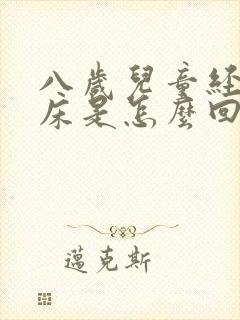 八歲兒童經
床是怎麼回
邁克斯